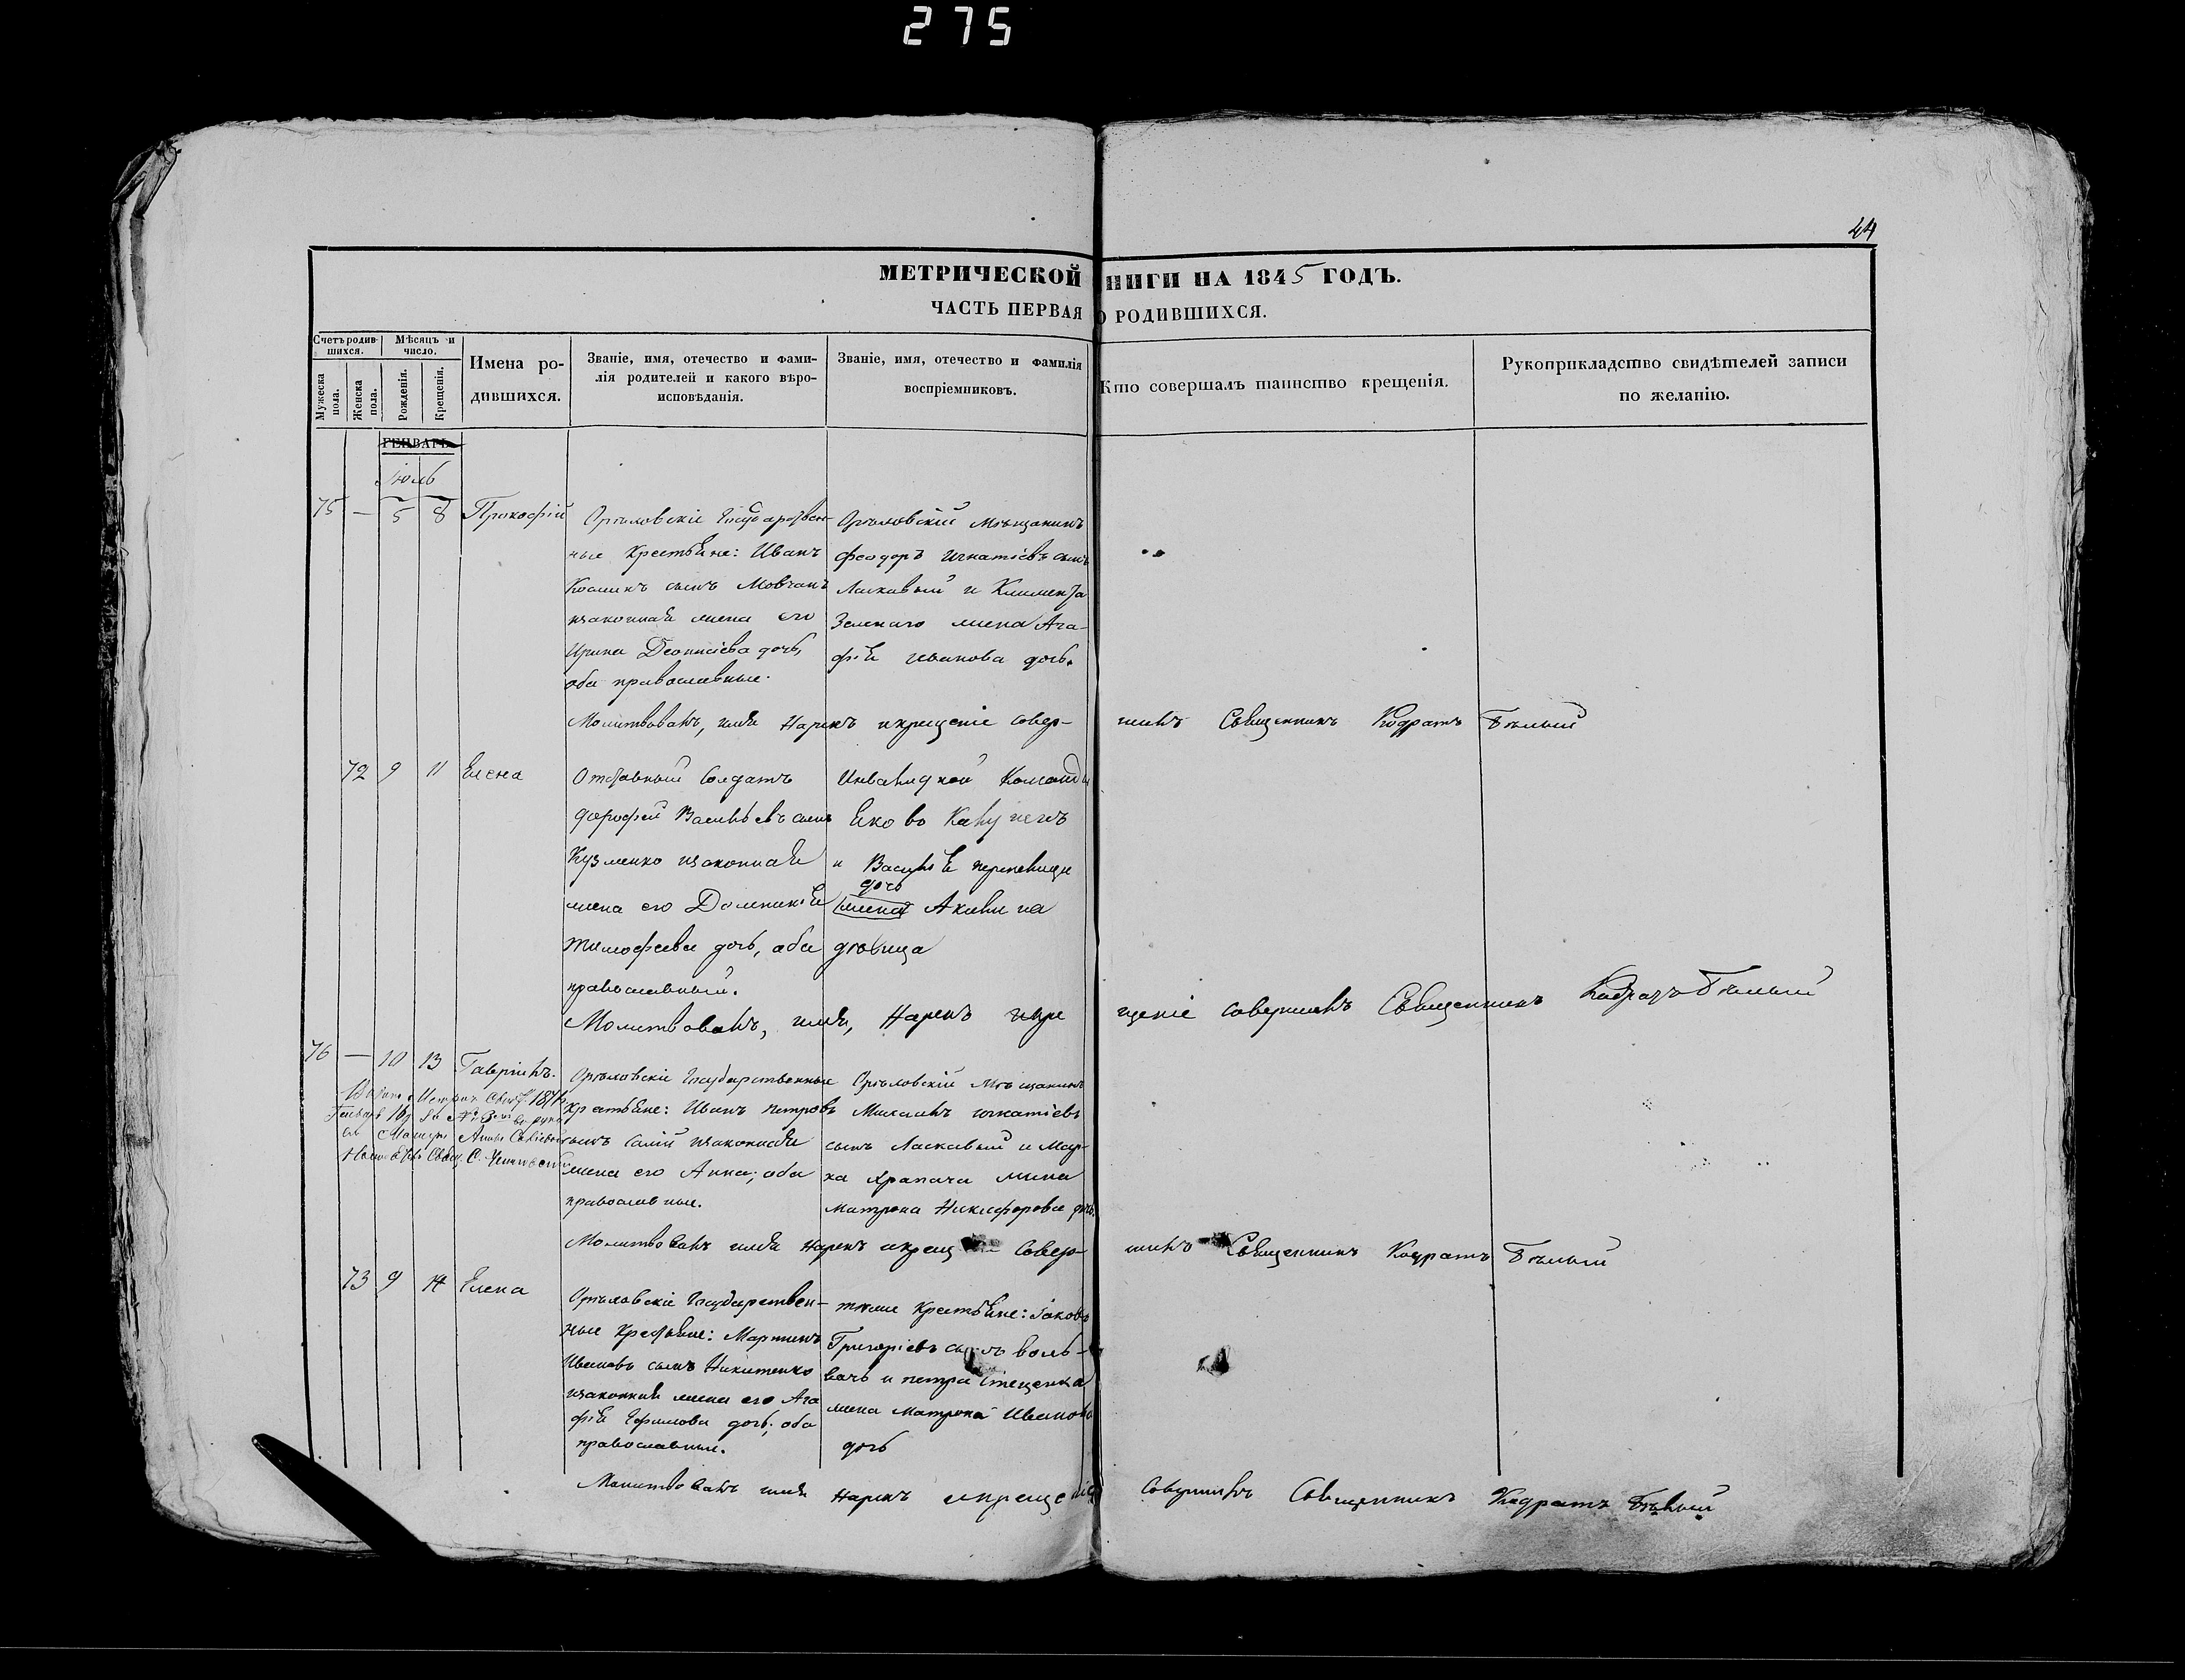 275
44
МЕТРИЧЕСКОЙ НИГИ НА 1845 ГОДЪ.
ЧАСТЬ ПЕРВАЯ О РОДИВШИХСЯ.
Счетъ родив-
шихся.
Мѣсяцъ и
число.
Мужеска
пола.
Женска
пола.
Рожденія.
Крещенія.
Имена ро-
дившихся.
Званіе, имя, отечество и фами-
лія родителей и какого вѣро-
исповѣданія.
Званіе, имя, отечество и фамилія
воспріемниковъ.
Кто совершалъ таинство крещенія.
Рукоприкладство свидѣтелей записи
по желанію.
ГЕНВАРЬ
Іюль
75 — 5 8 Прокофій
Орѣловскіе Государствен-
ные Крестьяне: Иванъ
сынъ Мовчанъ
изаконная жена его
Ирина Деонисіева дочь,
оба православные.
Орѣловскій Мѣщанинъ
Феодоръ Игнатіевъ сынъ
Ласкавый и Климента
Зеленаго жена Ага-
фія Иванова дочь.
Молитвовалъ, имя Нарекъ икрещеніе совер- шилъ Священникъ Кодратъ Бѣлый
72 9 11 Елена
Отставный Солдатъ
Дорофей Васильевъ сынъ
Кузменко изаконная
жена его Домникія
Тимофеева дочь, оба
православный.
Инвалидной Команды
Яково
и Василія
дочь
жена Акилина
дѣвица
Молитвовалъ, имя, Нарекъ икре щеніе совершилъ Священникъ Кодратъ Бѣлый
76 — 10 13 Гавріилъ.
Орѣловскіе Государственные
Крестьяне: Иванъ Петровъ
сынъ изаконная
жена его Анна; оба
православные.
Орѣловскій Мѣщанинъ
Михаилъ Игнатіевъ
сынъ Ласкавый и Мар-
ка жена
Матрона Никифорова дочь.
Молитвовалъ имя Нарекъ икрещ Совер- шилъ Священникъ Кодратъ Бѣлый
73 9 14 Елена
Орѣловскіе Государствен-
ные Крестьяне: Мартинъ
Ивановъ сынъ Никитенко
изаконная жена его Ага
фія Ефимова дочь; оба
православные.
Крестьяне: Іаковъ
Григоріевъ сынъ
и Петра Стеценка
жена Матрона Иванова
дочь
Молитвовалъ имя Нарекъ икрещеніе Совершилъ Священникъ Кодратъ Бѣлый